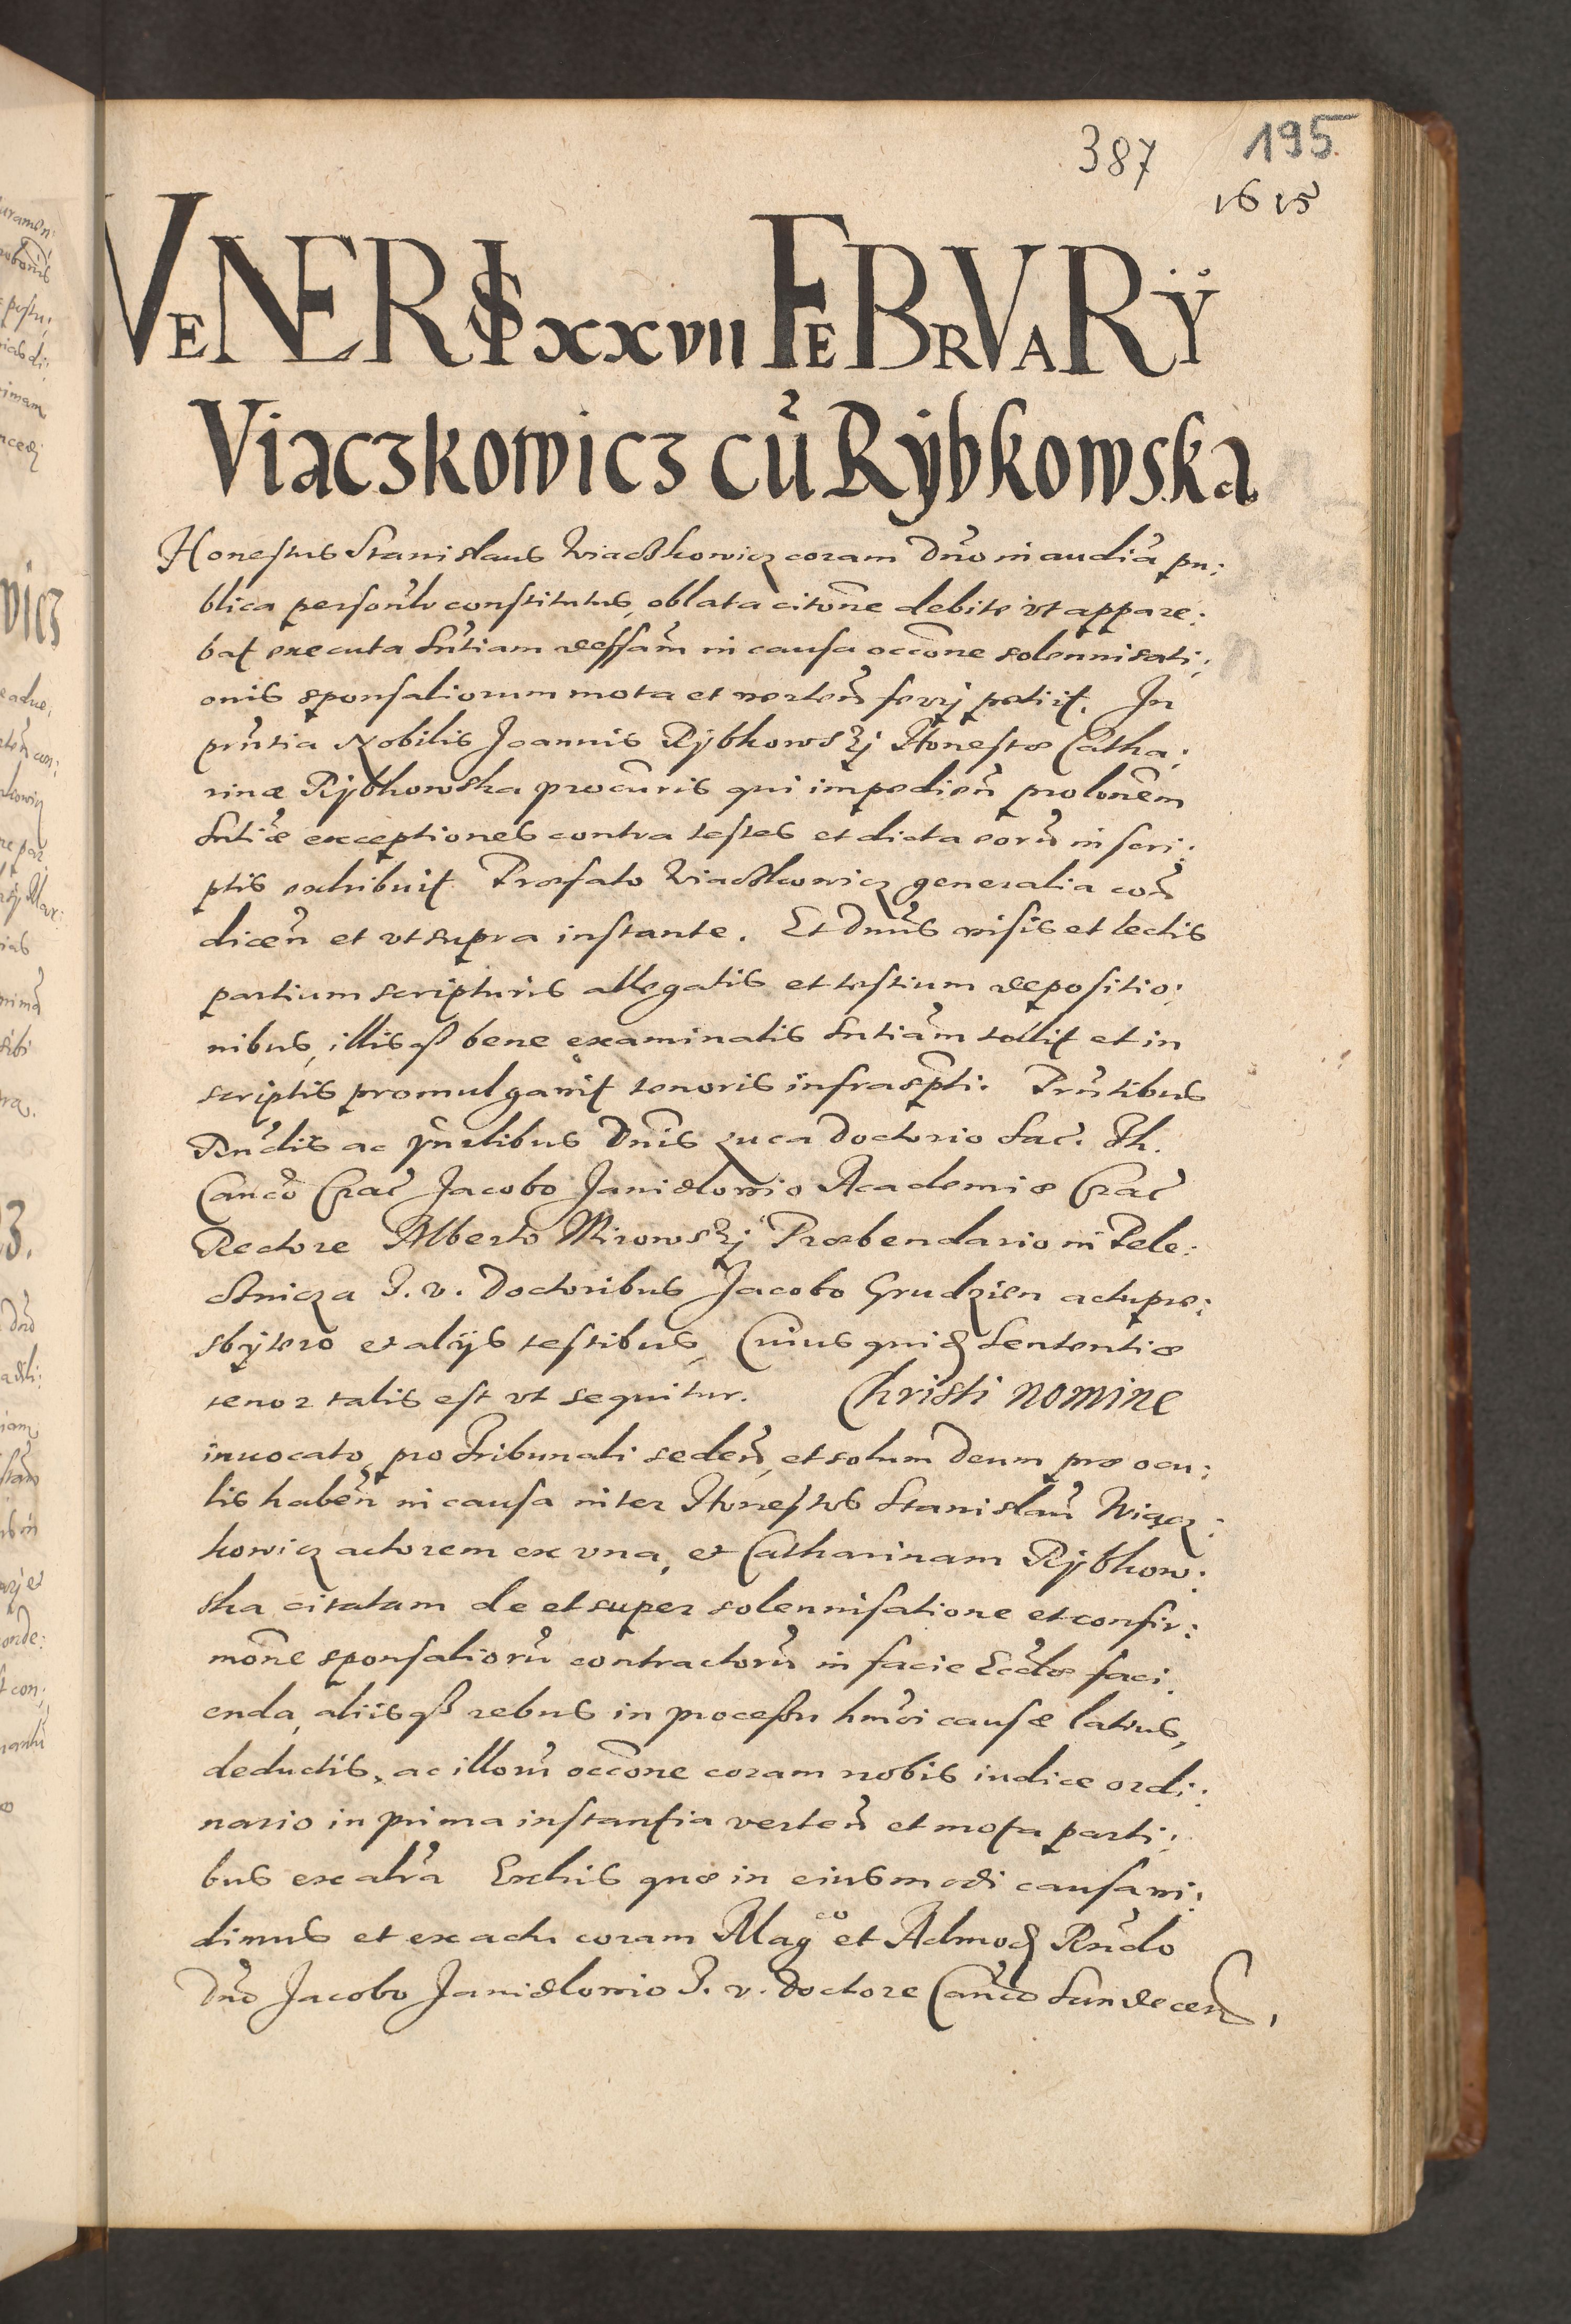 387 195.
1615
VENERIS xxvii FEBRVARŸ
Viaczkowicz cũ Rÿbkowska
Honestus Stanislaus Wiaczkowicz coram Dno in audia pu:
blica personlr constitutus, oblata citone debite vt appare:
bat executa sntiam deffam in causa occone solennisati:
onis sponsaliorum mota et verten ferrj petijt. In
prntia Nobilis Joannis Rÿbkowskj Honestæ Catha:
rinæ Rÿbkowska procuris qui impedien prolonem
sntiæ exceptiones contra testes et dicta eorũ in scri:
ptis exhibuit. Præfato Wiaczkowicz generalia con
dicen et vt supra instante. Et Dnus visis et lectis
partium scripturis allegatis et testium depositio:
nibus, illisqз bene examinatis sntiam tollit et in
scriptis promulgavit tenoris infrascpti. Prntibus
Rndis ac Dnis Luca Doctorio Sac. Th.
Canco Crac Jacobo Janidlowio Academiæ Crac
Rectore Alberto Mirowskj Præbendario in Pele:
sznicza J. v. Doctoribus Jacobo Grudzien actu pre:
sbÿtero et alijs testibus, Cuius quid Sententiæ
tenor talis est vt sequitur. Christi nomine
inuocato, pro Tribunali seden, et solum Deum præ ocu:
lis haben in causa inter Honestos Stanislaũ Wiącz:
kowicz actorem ex vna, et Catharinam Rÿbkow:
ska citatam de et super solennisatione et confir:
mone sponsaliorũ contractorũ in facie Eccliæ faci
enda, aliisqз rebus in processu hmoi causæ latius,
deductis, ac illorũ occone coram nobis iudice ordi:
nario in prima instantia verten et mota parti:
bus ex altra Ex his quæ in eiusmodi causa vi:
dimus et ex actu coram Magco et Admod Rndo
Dno Jacobo Janidlowio J. v. Doctore Canco Sandecen,